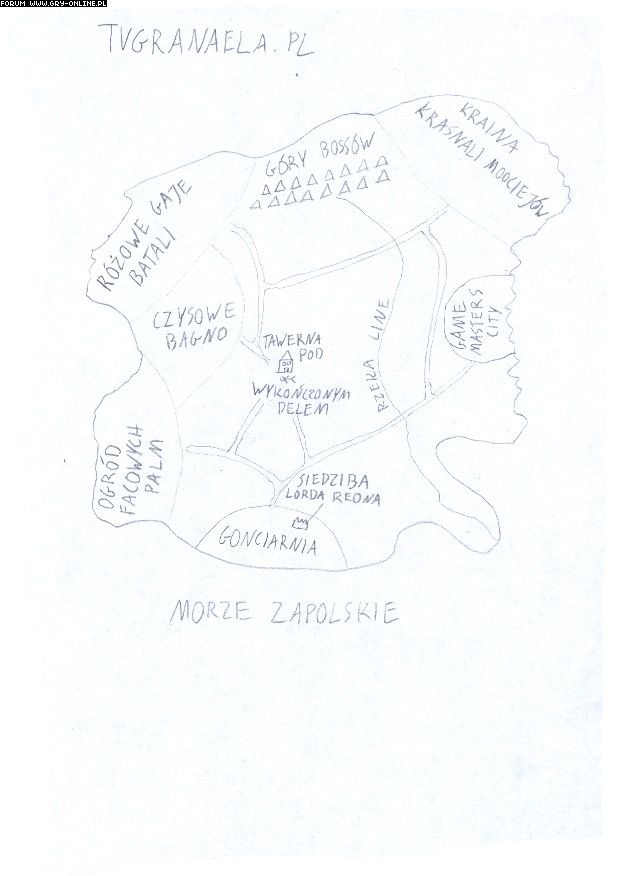 FORUM WWW.GRY-ONLINE.PL
TVGRANAELA.PL
KRAINA
KRASNALI MOOCIEJÓW
GÓRY BOSSÓW
RÓŻOWE GAJE
BATALI
CZYSOWE
BAGNO
GAME
MASTERS
CITY
RZEKA LINE
TAWERNA
POD
WYKOŃCZONYM
DELEM
OGRÓD
FACOWYCH
PALM
SIEDZIBA
LORDA REONA
GONCIARNIA
MORZE ZAPOLSKIE